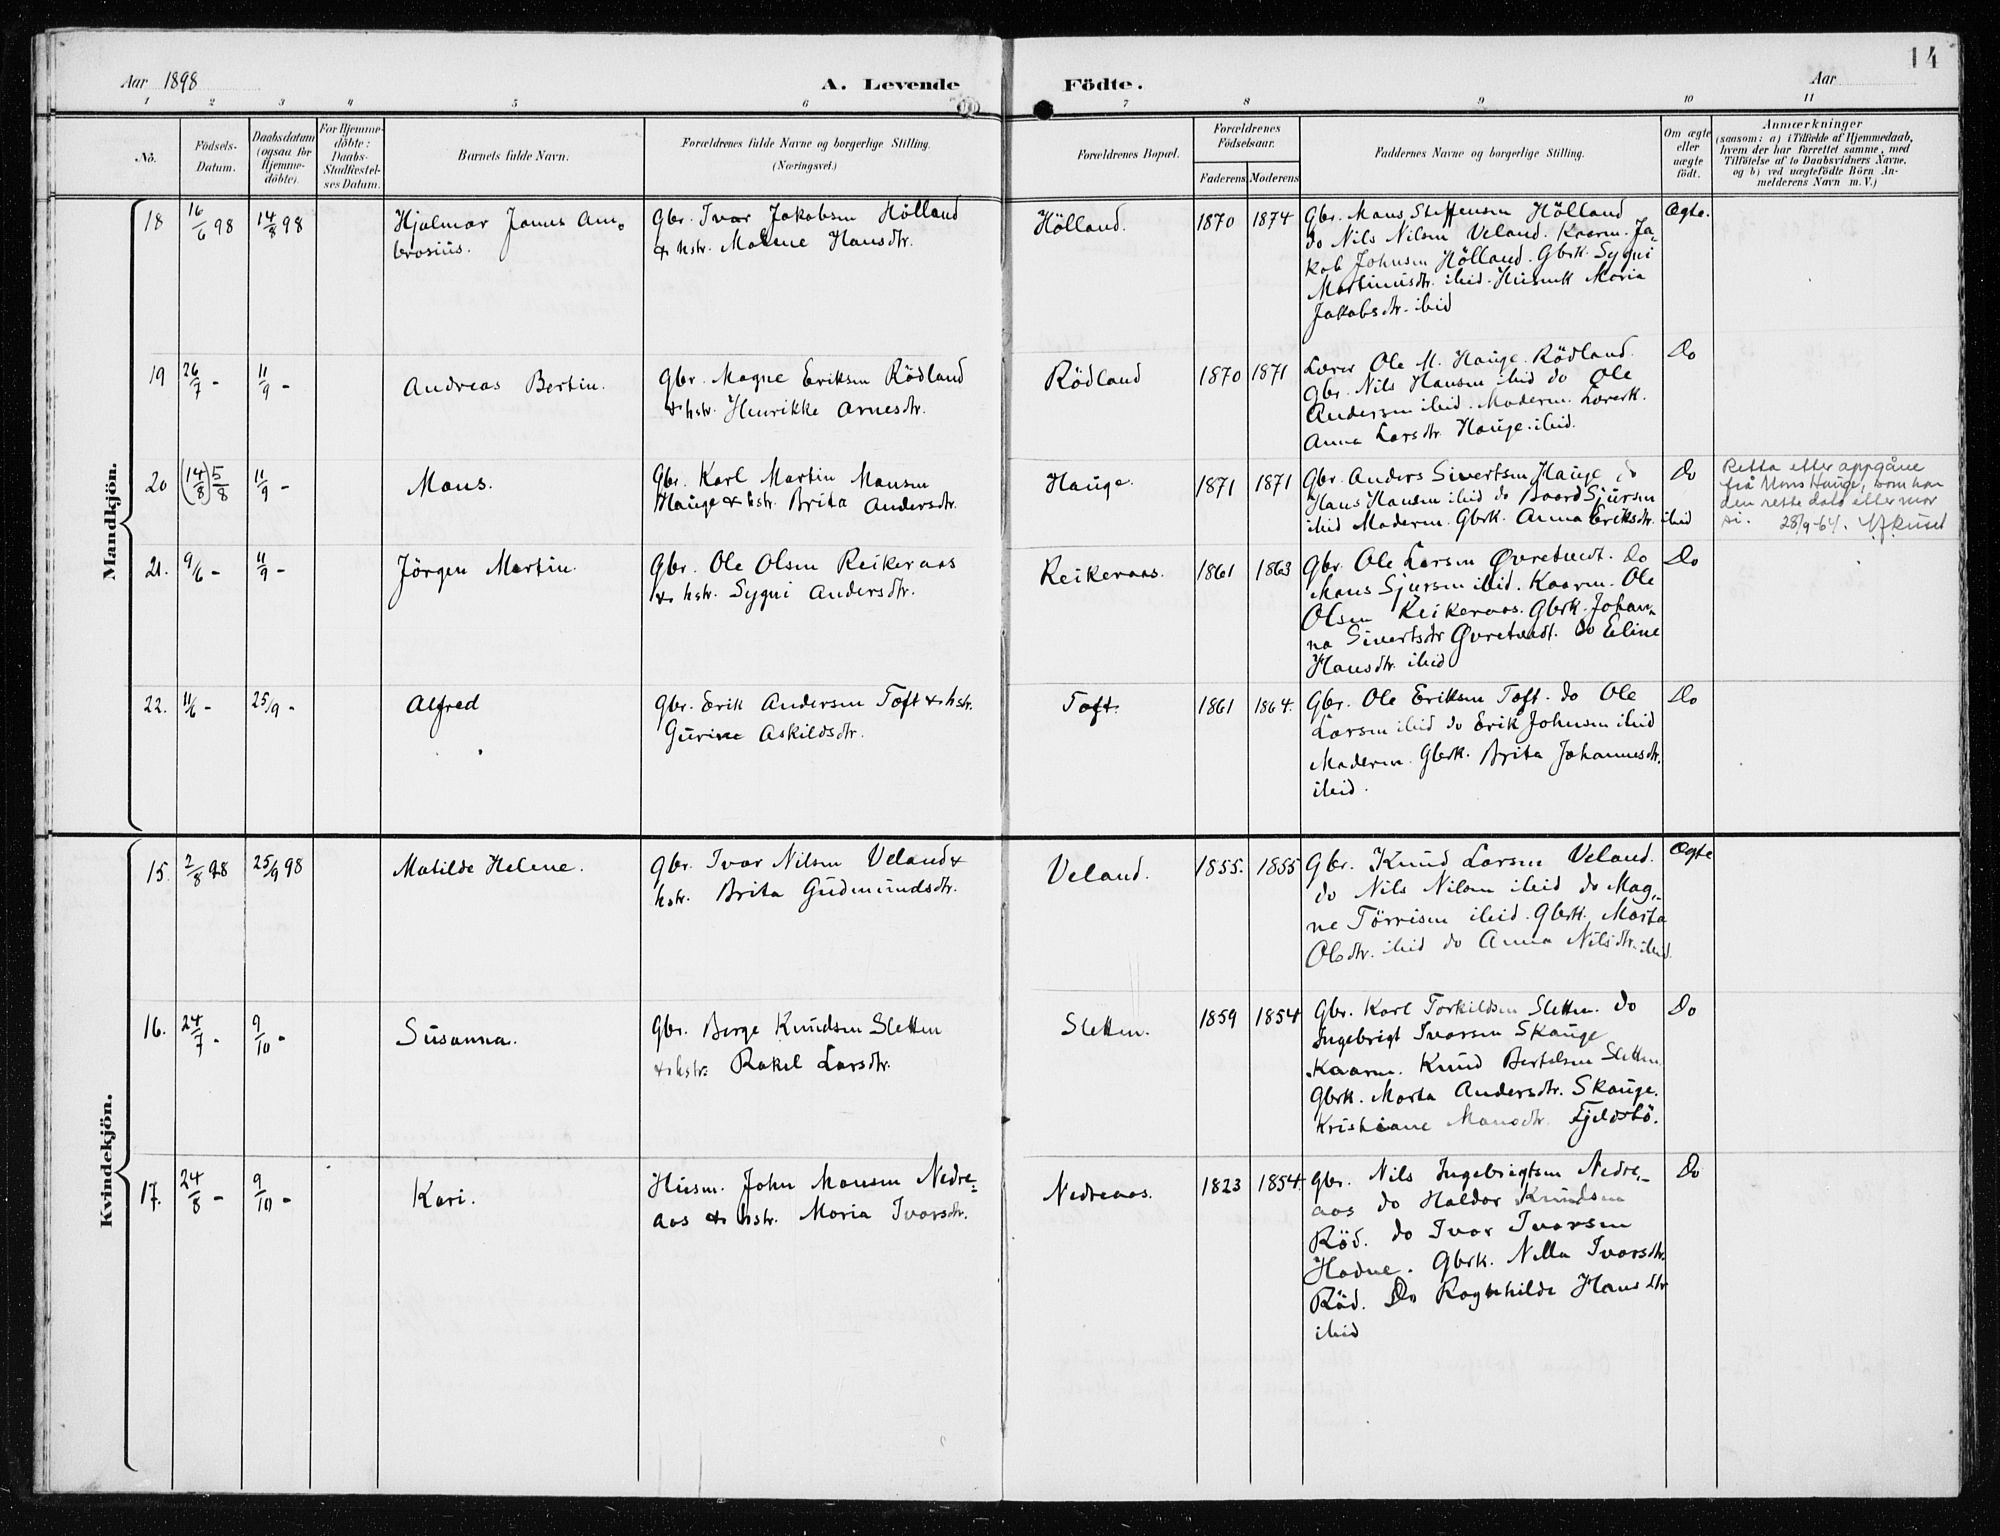 14
Aar 1898
A. Levende
Födte.
Aar
1 2 3 4 5 6 7 8 9 10 11
No.
Födsels-
Datum.
Daabsdatum
(ogsaa for
Hjemme-
döbte).
For Hjemme-
döbte:
Daabs-
Stadfæstel-
ses Datum.
Barnets fulde Navn.
Forældrenes fulde Navne og borgerlige Stilling.
(Næringsvei.)
Forældrenes Bopæl.
Forældrenes
Födselsaar.
Faderens
Moderens
Faddernes Navne og borgerlige Stilling.
Om ægte
eller
uægte
födt.
Anmærkninger
(saasom: a) i Tilfælde af Hjemmedaab,
hvem der har forrettet samme, med
Tilföielse af to Daabsvidners Navne,
og b) ved uægtefödte Börn An-
melderens Navn m. V.)
Mandkjön.
18 16/6 98 14/8 98
Hjalmar Janus Am-
brosius.
Gbr. Ivar Jakobsen Hölland
& hstr. Malene Hansdtr.
Hölland. 1870 1874
Gbr. Mons Steffensen Hölland
do Nils Nilsen Veland. Kaarm. Ja-
kob Johnsen Hölland. Gbrk. Sygni
Martinusdtr. ibid. Husmk Maria
Jakobsdtr. ibid
Ægte.
19 26/7 - 11/9 -
Andreas Bertin.
Gbr. Magne Eriksen Rödland
& hstr. Henrikke Arnesdtr.
Rödland 1870 1871
Lærer Ole M. Hauge. Rödland.
Gbr. Nils Hansen ibid do Ole
Andersen ibid. Moderen. Lærerk.
Anna Larsdtr. Hauge. ibid.
Do
20 (14/8) 5/8 11/9 -
Mons.
Gbr. Karl Martin Monsen
Hauge & hstr. Brita Andersdtr.
Hauge. 1871 1871
Gbr. Anders Sivertsen Hauge do
Hans Hansen ibid do Baard Sjursen
ibid Moderen. Gbrk. Anna Eriksdtr. ibid
Do
Retta etter oppgåve
frå Mons Hauge, som har
den rette dato etter mor
si. 28/9-64.
21. 9/6 - 11/9 -
Jörgen Martin.
Gbr. Ole Olsen Reikeraas
& hstr. Sygni Andersdtr.
Reikeraas. 1861 1863
Gbr. Ole Larsen Øvretvedt. do
Mons Sjursen ibid. Kaarm. Ole
Olsen Reikeraas. Gbrk. Johan-
na Sivertsdtr Øvretvedt. do Eline
Hansdtr. ibid
Do
22. 11/6 - 25/9 -
Alfred
Gbr. Erik Andersen Toft & hstr.
Gurine Askildsdtr.
Toft. 1861 1864.
Gbr. Ole Eriksen Toft. do Ole
Larsen ibid do Erik Johnsen ibid
Moderen. Gbrk. Brita Johannesdtr.
ibid.
Do
Kvindekjön.
15. 2/8 98 25/9 98
Matilde Helene.
Gbr. Ivar Nilsen Veland &
hstr. Brita Gudmundsdtr.
Veland. 1855. 1855
Gbr. Knud Larsen Veland.
do Nils Nilsen ibid do Mag-
ne Törrisen ibid. Gbrk. Marta
Olsdtr. ibid do Anna Nilsdtr. ibid.
Ægte
16. 24/7 - 9/10 -
Susanna.
Gbr. Berge Knudsen Sletten
& hstr: Rakel Larsdtr.
Sletten. 1859 1854
Gbr. Karl Torkildsen Sletten. do
Ingebrigt Ivarsen Skauge
Kaarm. Knud Bertelsen Sletten
Gbrk. Marta Andersdtr. Skauge.
Kristiane Monsdtr. Fjeldsbö.
Do
17. 24/8 - 9/10 -
Kari.
Husm. John Monsen Nedre=
aas & hstr. Maria Ivarsdtr.
Nedreaas. 1823 1854.
Gbr. Nils Ingebrigtsen Nedre-
aas do Haldor Knudsen
Röd. do Ivar Ivarsen
Hadne. Gbrk. Nilla Ivarsdtr.
Röd. Do Ragnhilde Hansdtr
ibid
Do